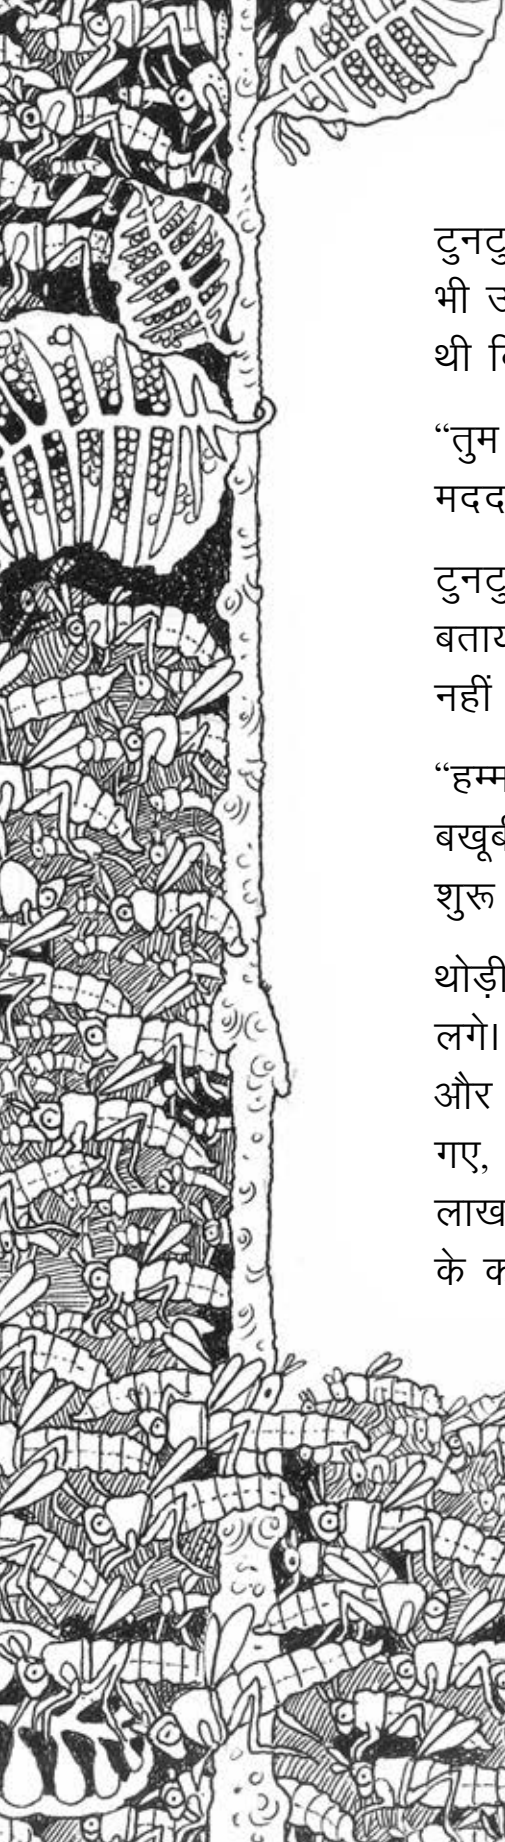 टुनटु
भी
थी
“तुम
मदद
टुनटु
बताय
नहीं
“हम्म
बखूबी
शुरू
थोड़ी
लगे।
और
गए,
लाख
के